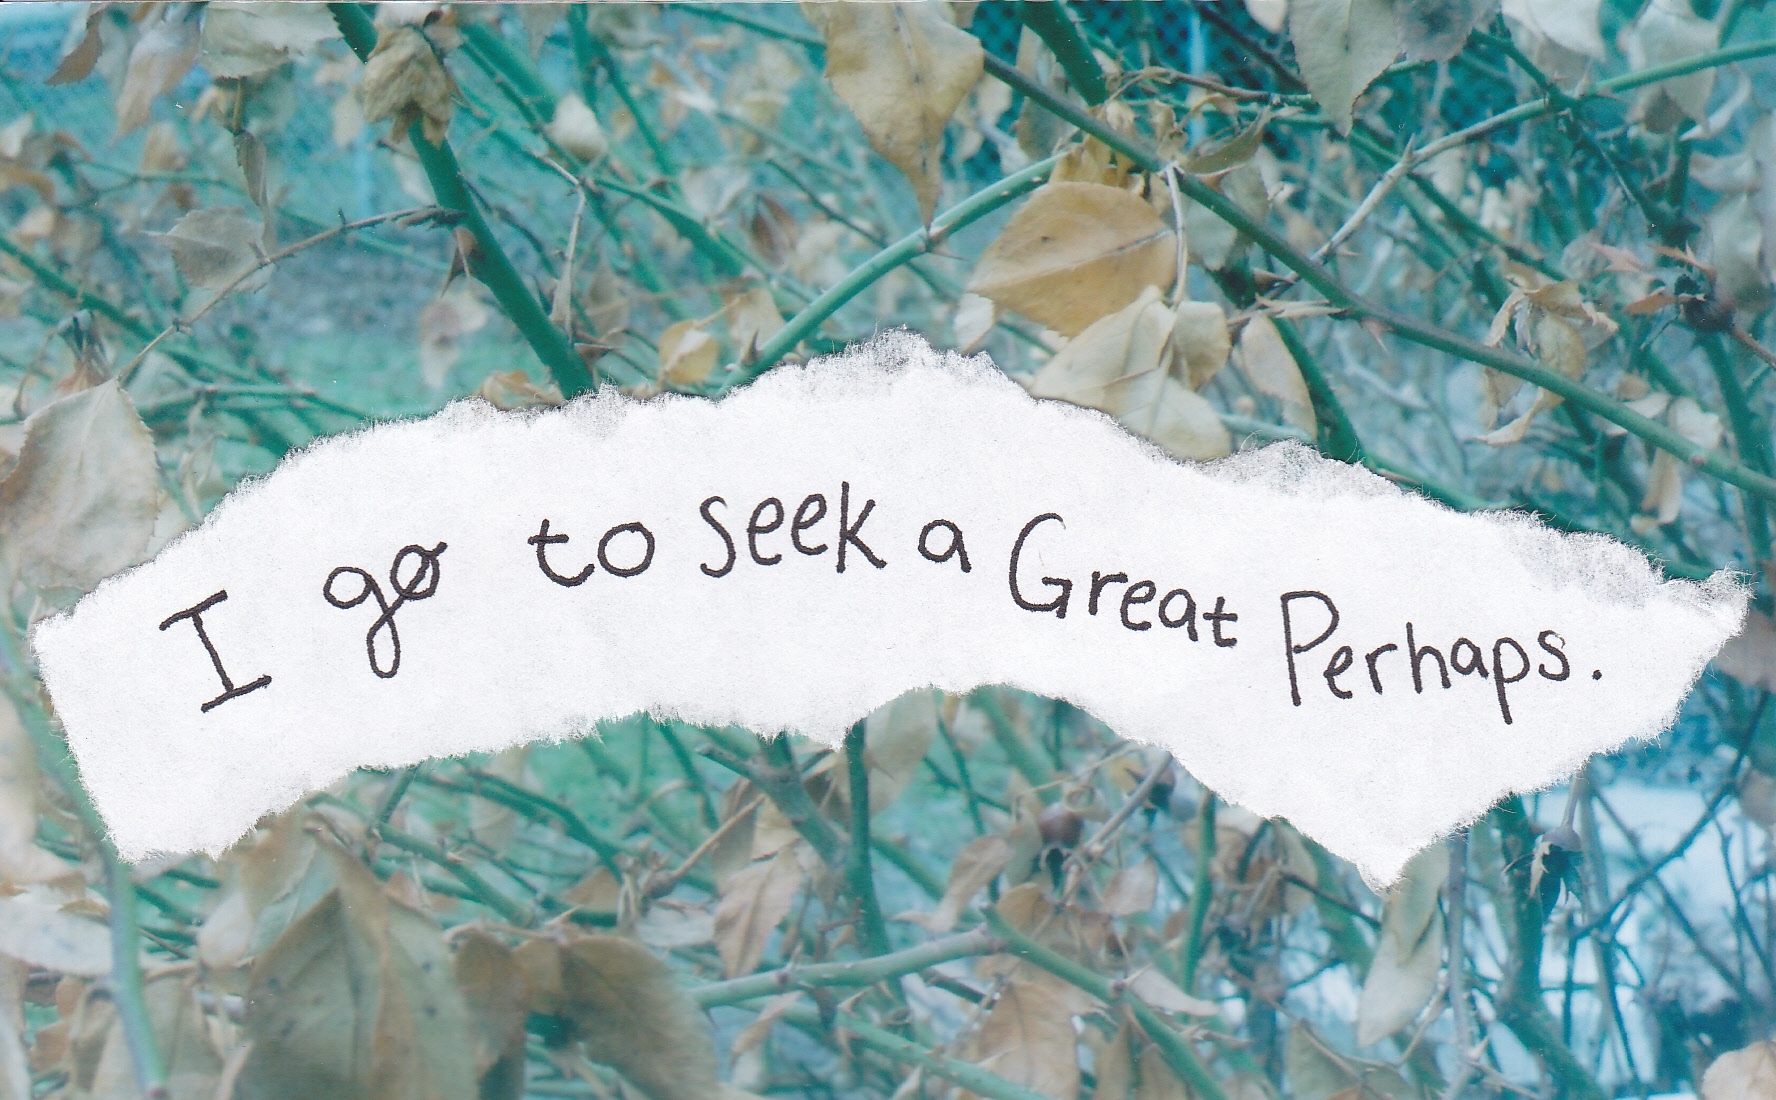 I go to seek a Great Perhaps.